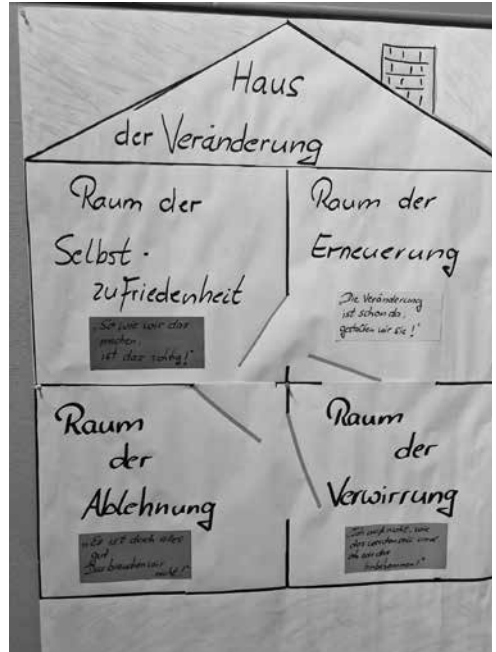 Haus
der Veränderung
Raum der
Selbst-
zufriedenheit
„So wie wir das
machen,
ist das richtig!"
Raum der
Erneuerung
„Die Veränderung
ist schon da,
gestalten wir sie!"
Raum
der
Ablehnung
„Es ist doch alles
gut
Das brauchen wir
nicht!"
Raum
der
Verwirrung
„Ich weiß nicht, wie